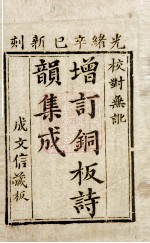 光緒辛巳新刻
校對無訛
增訂銅板詩
韻集成
成文信藏板